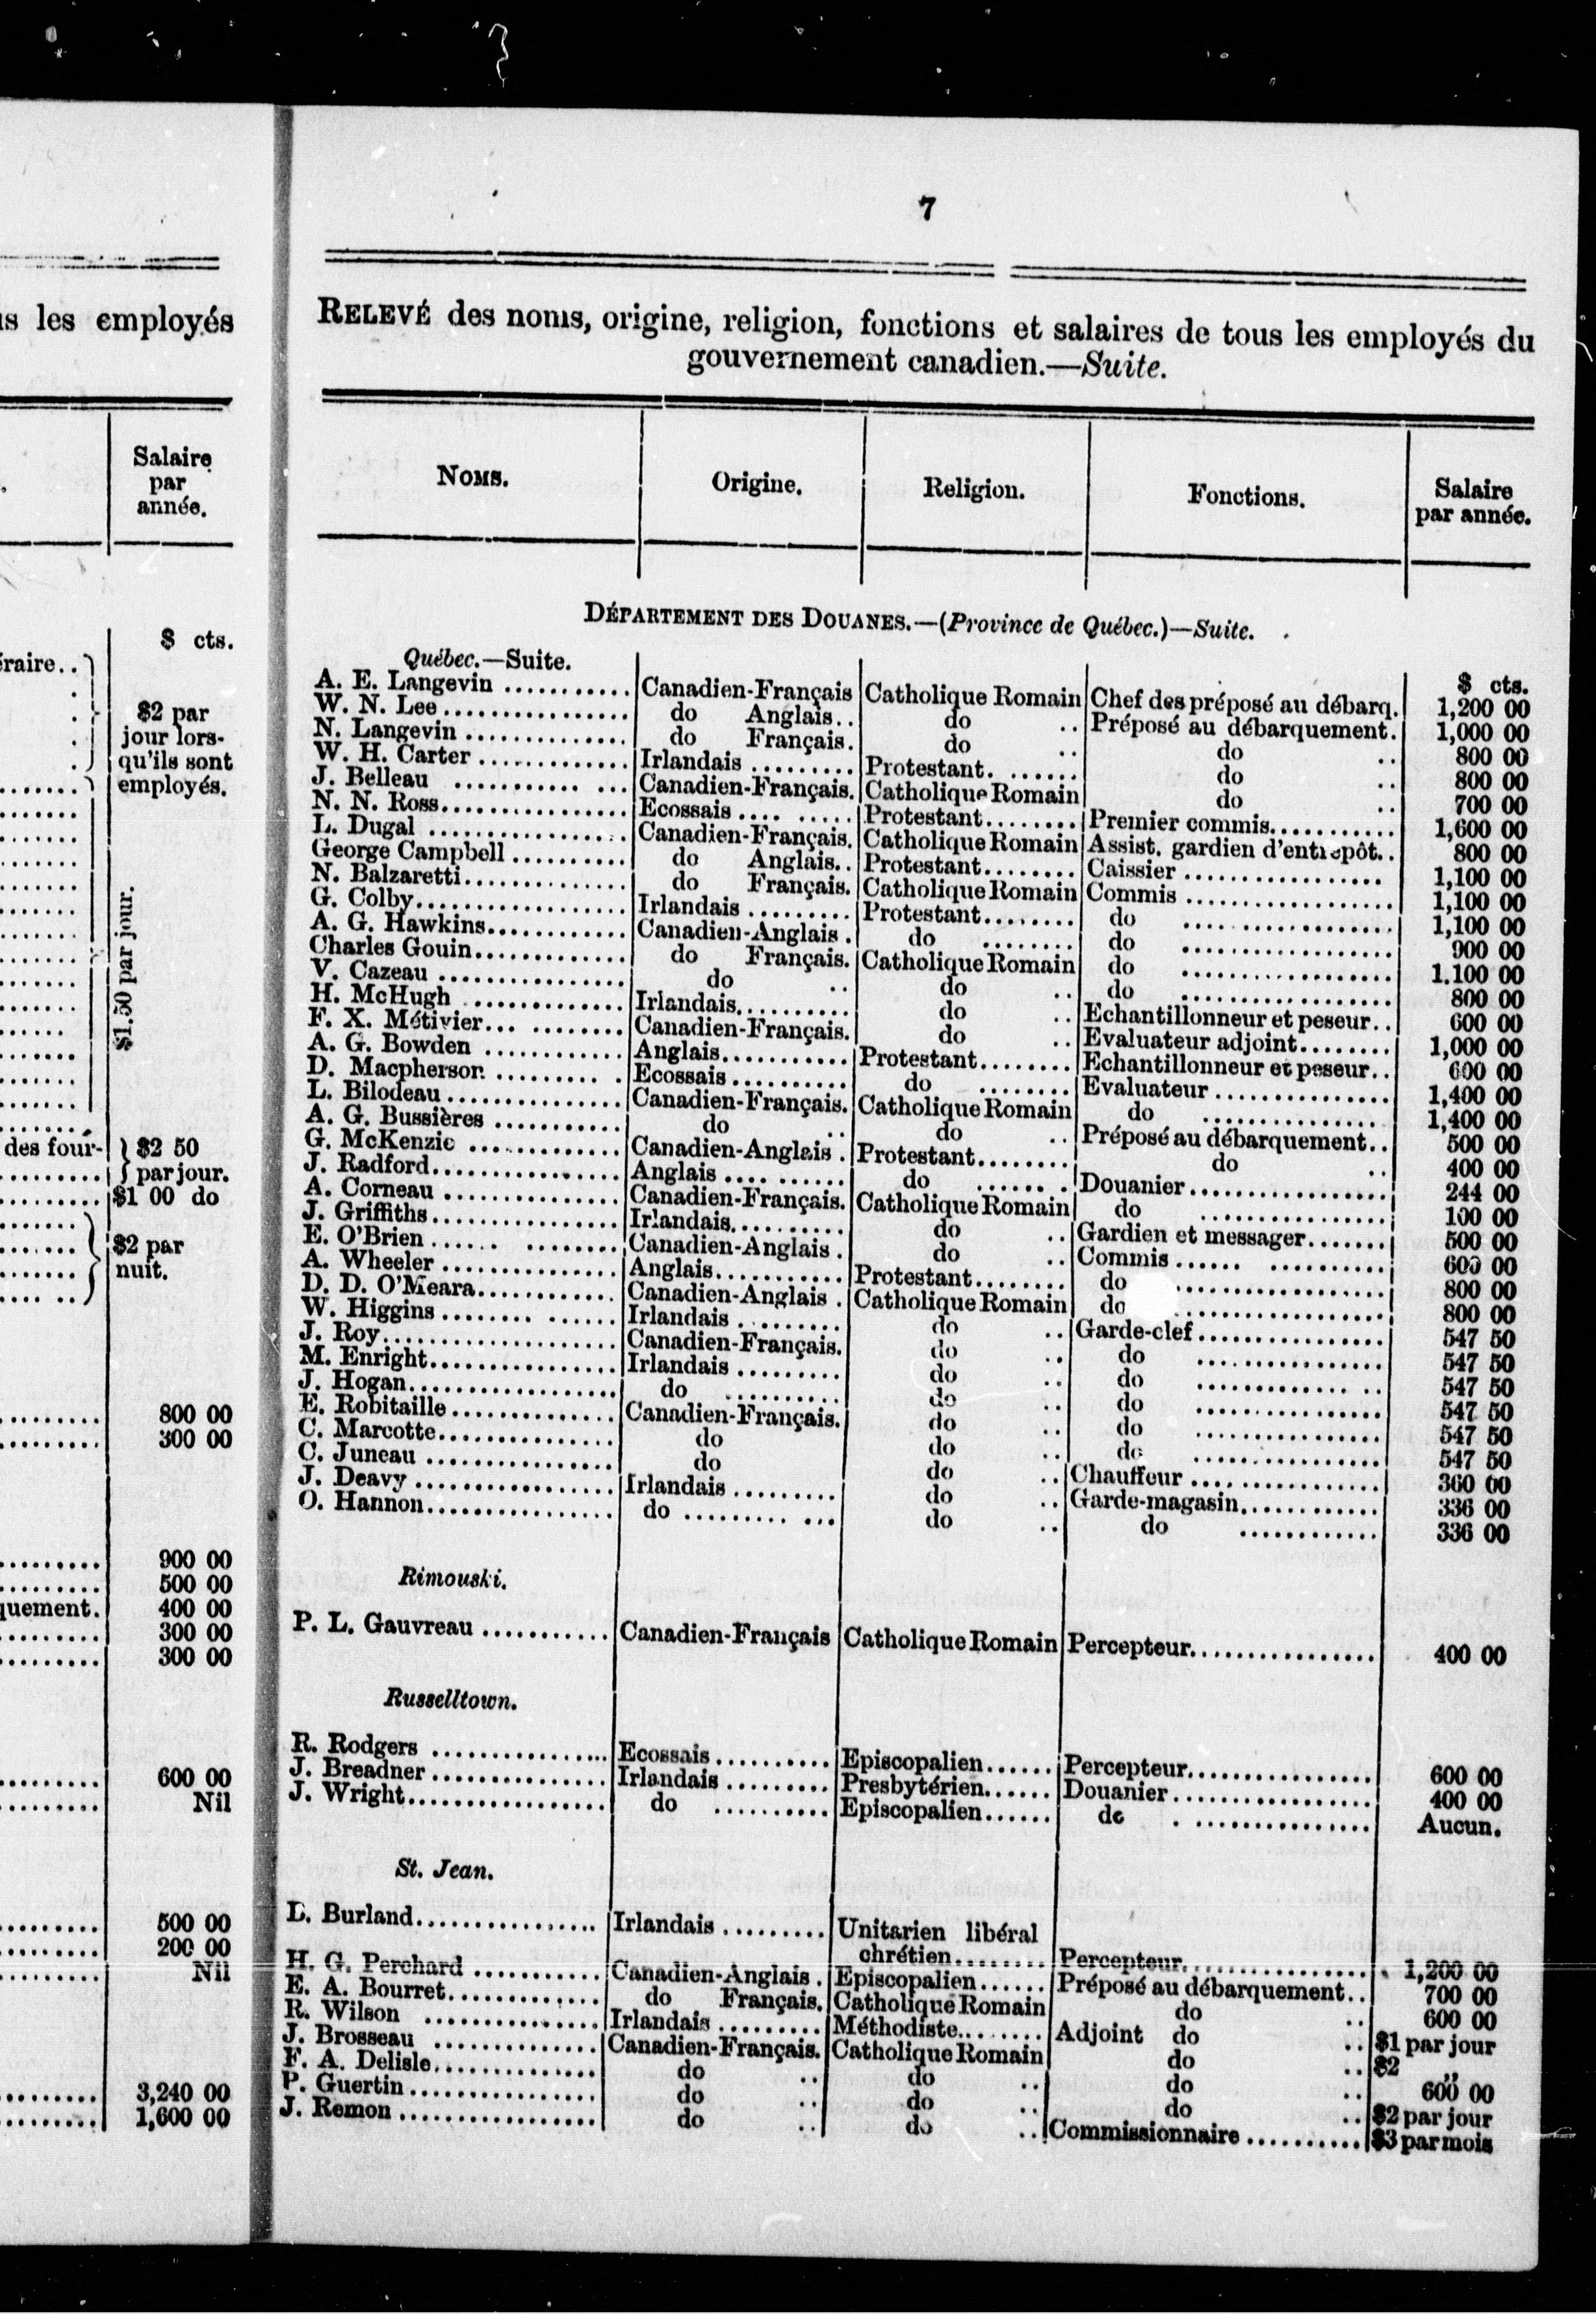 ıs les employés
Salaire
par
année.
$ cts.
éraire..
$2 par
jour lors-
qu'ils sont
employés.
$1.50 par jour.
des four- $2 50
par jour.
$1 00 do
$2 par
nuit.
800 00
300 00
900 00
500 00
quement. 400 00
300 00
300 00
600 00
Nil
500 00
200 00
Nil
3,240 00
1,600 00
7
RELEVÉ des noms, origine, religion, fonctions et salaires de tous les employés du
gouvernement canadien.—Suite.
NOMS. Origine. Religion. Fonctions. Salaire
par année.
DÉPARTEMENT DES DOUANES.—(Province de Québec.)—Suite.
Québec.—Suite. $ cts.
A. E. Langevin ........... Canadien-Français Catholique Romain Chef des préposé au débarq. 1,200 00
W. N. Lee ................ do Anglais.. do .. Préposé au débarquement. 1,000 00
N. Langevin .............. do Français. do .. do .. 800 00
W. H. Carter ............. Irlandais ......... Protestant. ....... do .. 800 00
J. Belleau ........... ... Canadien-Français. Catholique Romain do .. 700 00
N. N. Ross................ Ecossais .... ..... Protestant........ Premier commis........... 1,600 00
L. Dugal ................. Canadien-Français. Catholique Romain Assist. gardien d'entrepôt.. 800 00
George Campbell .......... do Anglais.. Protestant........ Caissier ................. 1,100 00
N. Balzaretti.............. do Français. Catholique Romain Commis .................. 1,100 00
G. Colby.................. Irlandais ......... Protestant........ do .................. 1,100 00
A. G. Hawkins............ Canadien-Anglais . do ........ do .................. 900 00
Charles Gouin............. do Français. Catholique Romain do .................. 1.100 00
V. Cazeau ................ do .. do .. do .................. 800 00
H. McHugh .............. Irlandais.......... do .. Echantillonneur et peseur.. 600 00
F. X. Métivier... ......... Canadien-Français. do .. Evaluateur adjoint........ 1,000 00
A. G. Bowden ............ Anglais........... Protestant........ Echantillonneur et peseur.. 600 00
D. Macpherson ......... . Ecossais .......... do ........ Evaluateur ............... 1,400 00
L. Bilodeau ............... Canadien-Français. Catholique Romain do ............... 1,400 00
A. G. Bussières ........... do .. do .. Préposé au débarquement.. 500 00
G. McKenzie ............. Canadien-Anglais . Protestant........ do .. 400 00
J. Radford................ Anglais .... ...... do ...... . Douanier................. 244 00
A. Corneau ............... Canadien-Français. Catholique Romain do ................ 100 00
J. Griffiths................ Irlandais.......... do .. Gardien et messager....... 500 00
E. O'Brien ...... ........ Canadien-Anglais . do .. Commis ...... .......... 600 00
A. Wheeler ............... Anglais........... Protestant........ do .................. 800 00
D. D. O'Meara............ Canadien-Anglais . Catholique Romain do .................. 800 00
W. Higgins ........ ...... Irlandais ......... do .. Garde-clef................ 547 50
J. Roy.................... Canadien-Français. do .. do ................ 547 50
M. Enright................ Irlandais ......... do .. do ............. .. 547 50
J. Hogan.................. do .......... do .. do ................ 547 50
E. Robitaille .............. Canadien-Français. do .. do ................ 547 50
C. Marcotte............... do do .. do ................ 547 50
C. Juneau ................ do do .. Chauffeur ................ 360 00
J. Deavy ................. Irlandais ......... do .. Garde-magasin............ 336 00
O. Hannon................ do ......... ... do .. do ............ 336 00
Rimouski.
P. L. Gauvreau ........... Canadien-Français Catholique Romain Percepteur................ 400 00
Russelltown.
R. Rodgers ............... Ecossais .......... Episcopalien...... Percepteur................ 600 00
J. Breadner ............... Irlandais ......... Presbytérien...... Douanier................. 400 00
J. Wright................. do .......... Episcopalien...... do . ............... Aucun.
St. Jean.
L. Burland................ Irlandais ......... Unitarien libéral
chrétien........ Percepteur................ 1,200 00
H. G. Perchard ........... Canadien-Anglais . Episcopalien...... Préposé au débarquement.. 700 00
E. A. Bourret............. do Français. Catholique Romain do .. 600 00
R. Wilson ............... Irlandais ......... Méthodiste........ Adjoint do .. $1 par jour
J. Brosseau .............. Canadien-Français. Catholique Romain do .. $2 ,,
F. A. Delisle.............. do .. do .. do .. 600 00
P. Guertin ................ do .. do .. do .. $2 par jour
J. Remon ................. do .. do .. Commissionnaire .......... $3 par mois